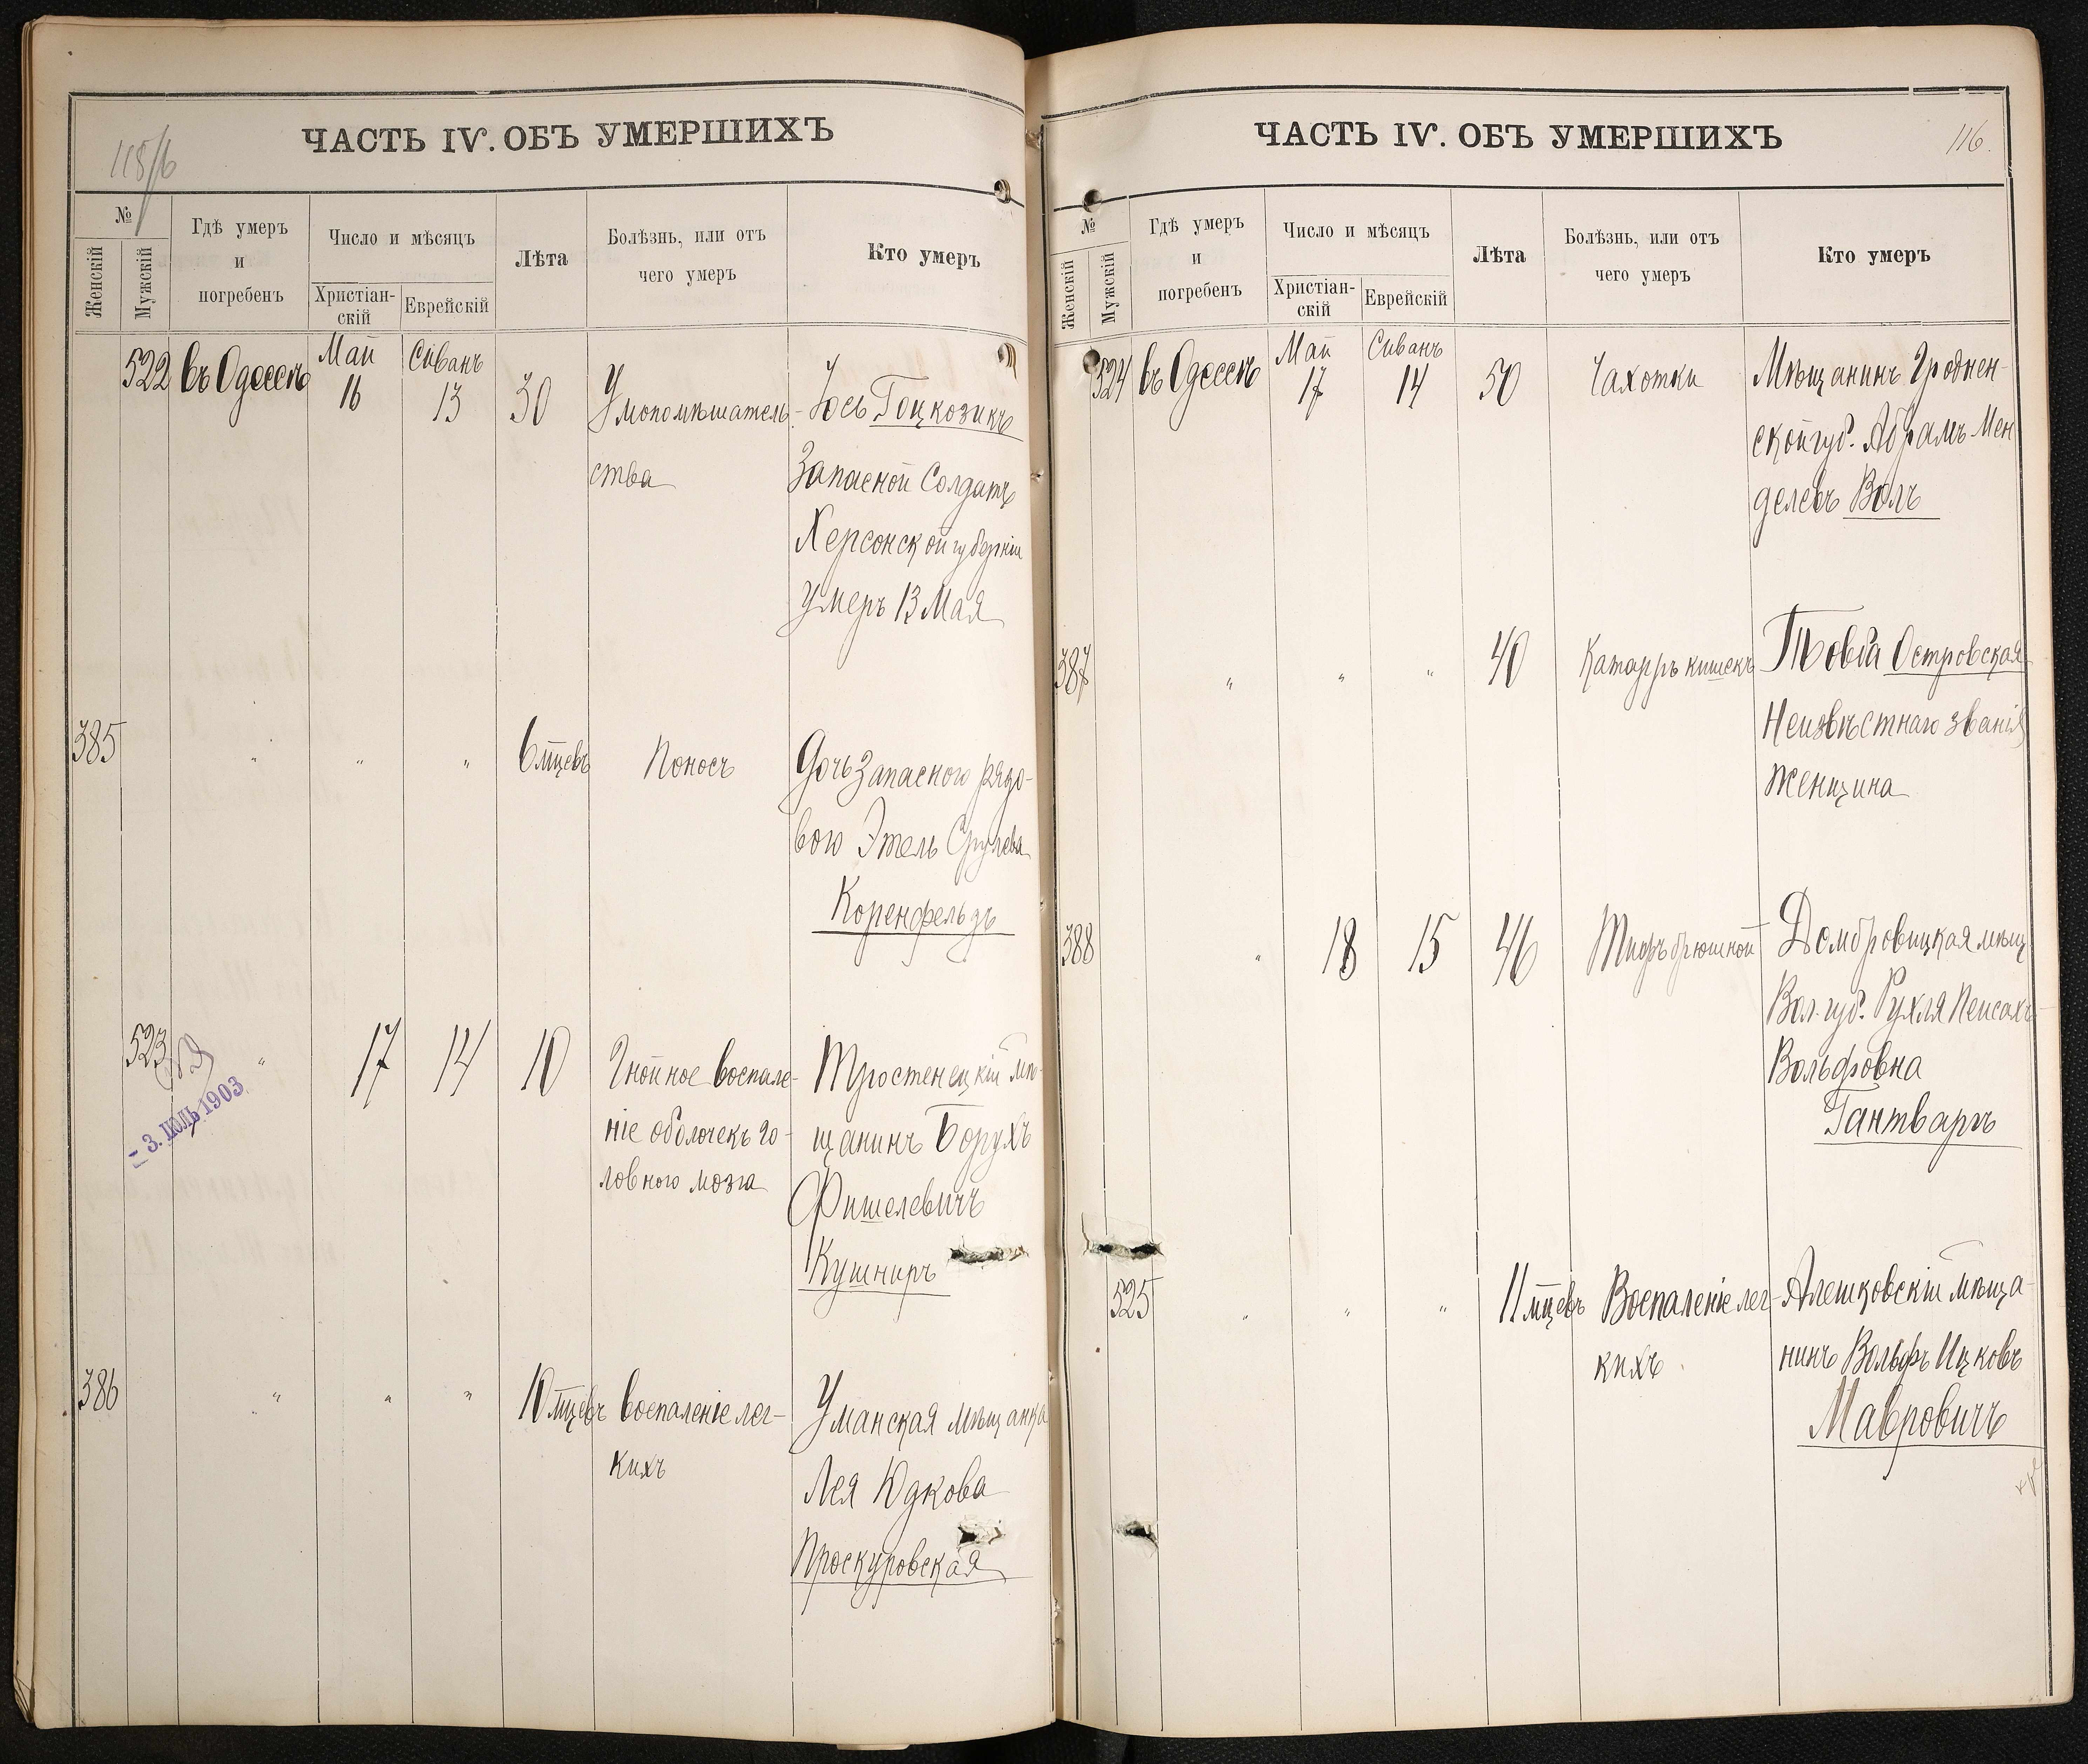 ЧАСТЬ IV. ОБЪ УМЕРШИХЪ
№
Женскій
Мужскій
Гдѣ умеръ
и
погребенъ
Число и мѣсяцъ
Христіан-
скій
Еврейскій
Лѣта
Болѣзнь, или отъ
чего умеръ
Кто умеръ
522 въ Одессѣ Май 16 Сиванъ 13 30 Умопомѣшатель- Іось Гоцкозикъ
ства Запасной Солдатъ
Херсонской губерніи
умеръ 13 Мая
385 " " " 6 мцевъ Поносъ Дочь Запасного рядо-
вого Этель Срулева
Коренфельдъ
523 " 17 14 10 Гнойное воспале- Тростенецкій мѣ-
ніе оболочекъ го- щанинъ Борухъ
ловного мозга Фишелевичъ
Кушниръ
– 3. ІЮЛЬ 1903
386 " " " 10 мцевъ воспаленіе лег- Уманская мѣщанка
кихъ Лея Юдкова
Проскуровская
ЧАСТЬ IV. ОБЪ УМЕРШИХЪ
116.
№
Женскій
Мужскій
Гдѣ умеръ
и
погребенъ
Число и мѣсяцъ
Христіан-
скій
Еврейскій
Лѣта
Болѣзнь, или отъ
чего умеръ
Кто умеръ
524 въ Одессѣ Май 17 Сиванъ 14 50 Чахотки Мѣщанинъ Гроднен-
ской губ. Абрамъ Мен
делевъ Волъ
387 " " " 40 Катарръ кишекъ Товба Островская
Неизвѣстнаго званія
женщина
388 " 18 15 46 Тифъ брюшной Домбровицкая мѣщ
Вол. губ. Рухля Пейсахъ-
Вольфовна
Гантваргъ
525 " " " 11 мцевъ Воспаленіе лег- Алешковскій мѣща-
кихъ нинъ Вольфъ Ицковъ
Мавровичъ